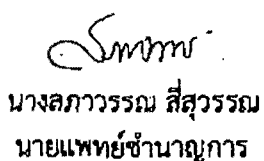 นางลภาวรรณ สี่สุวรรณ
นายแพทย์ชำนาญการ